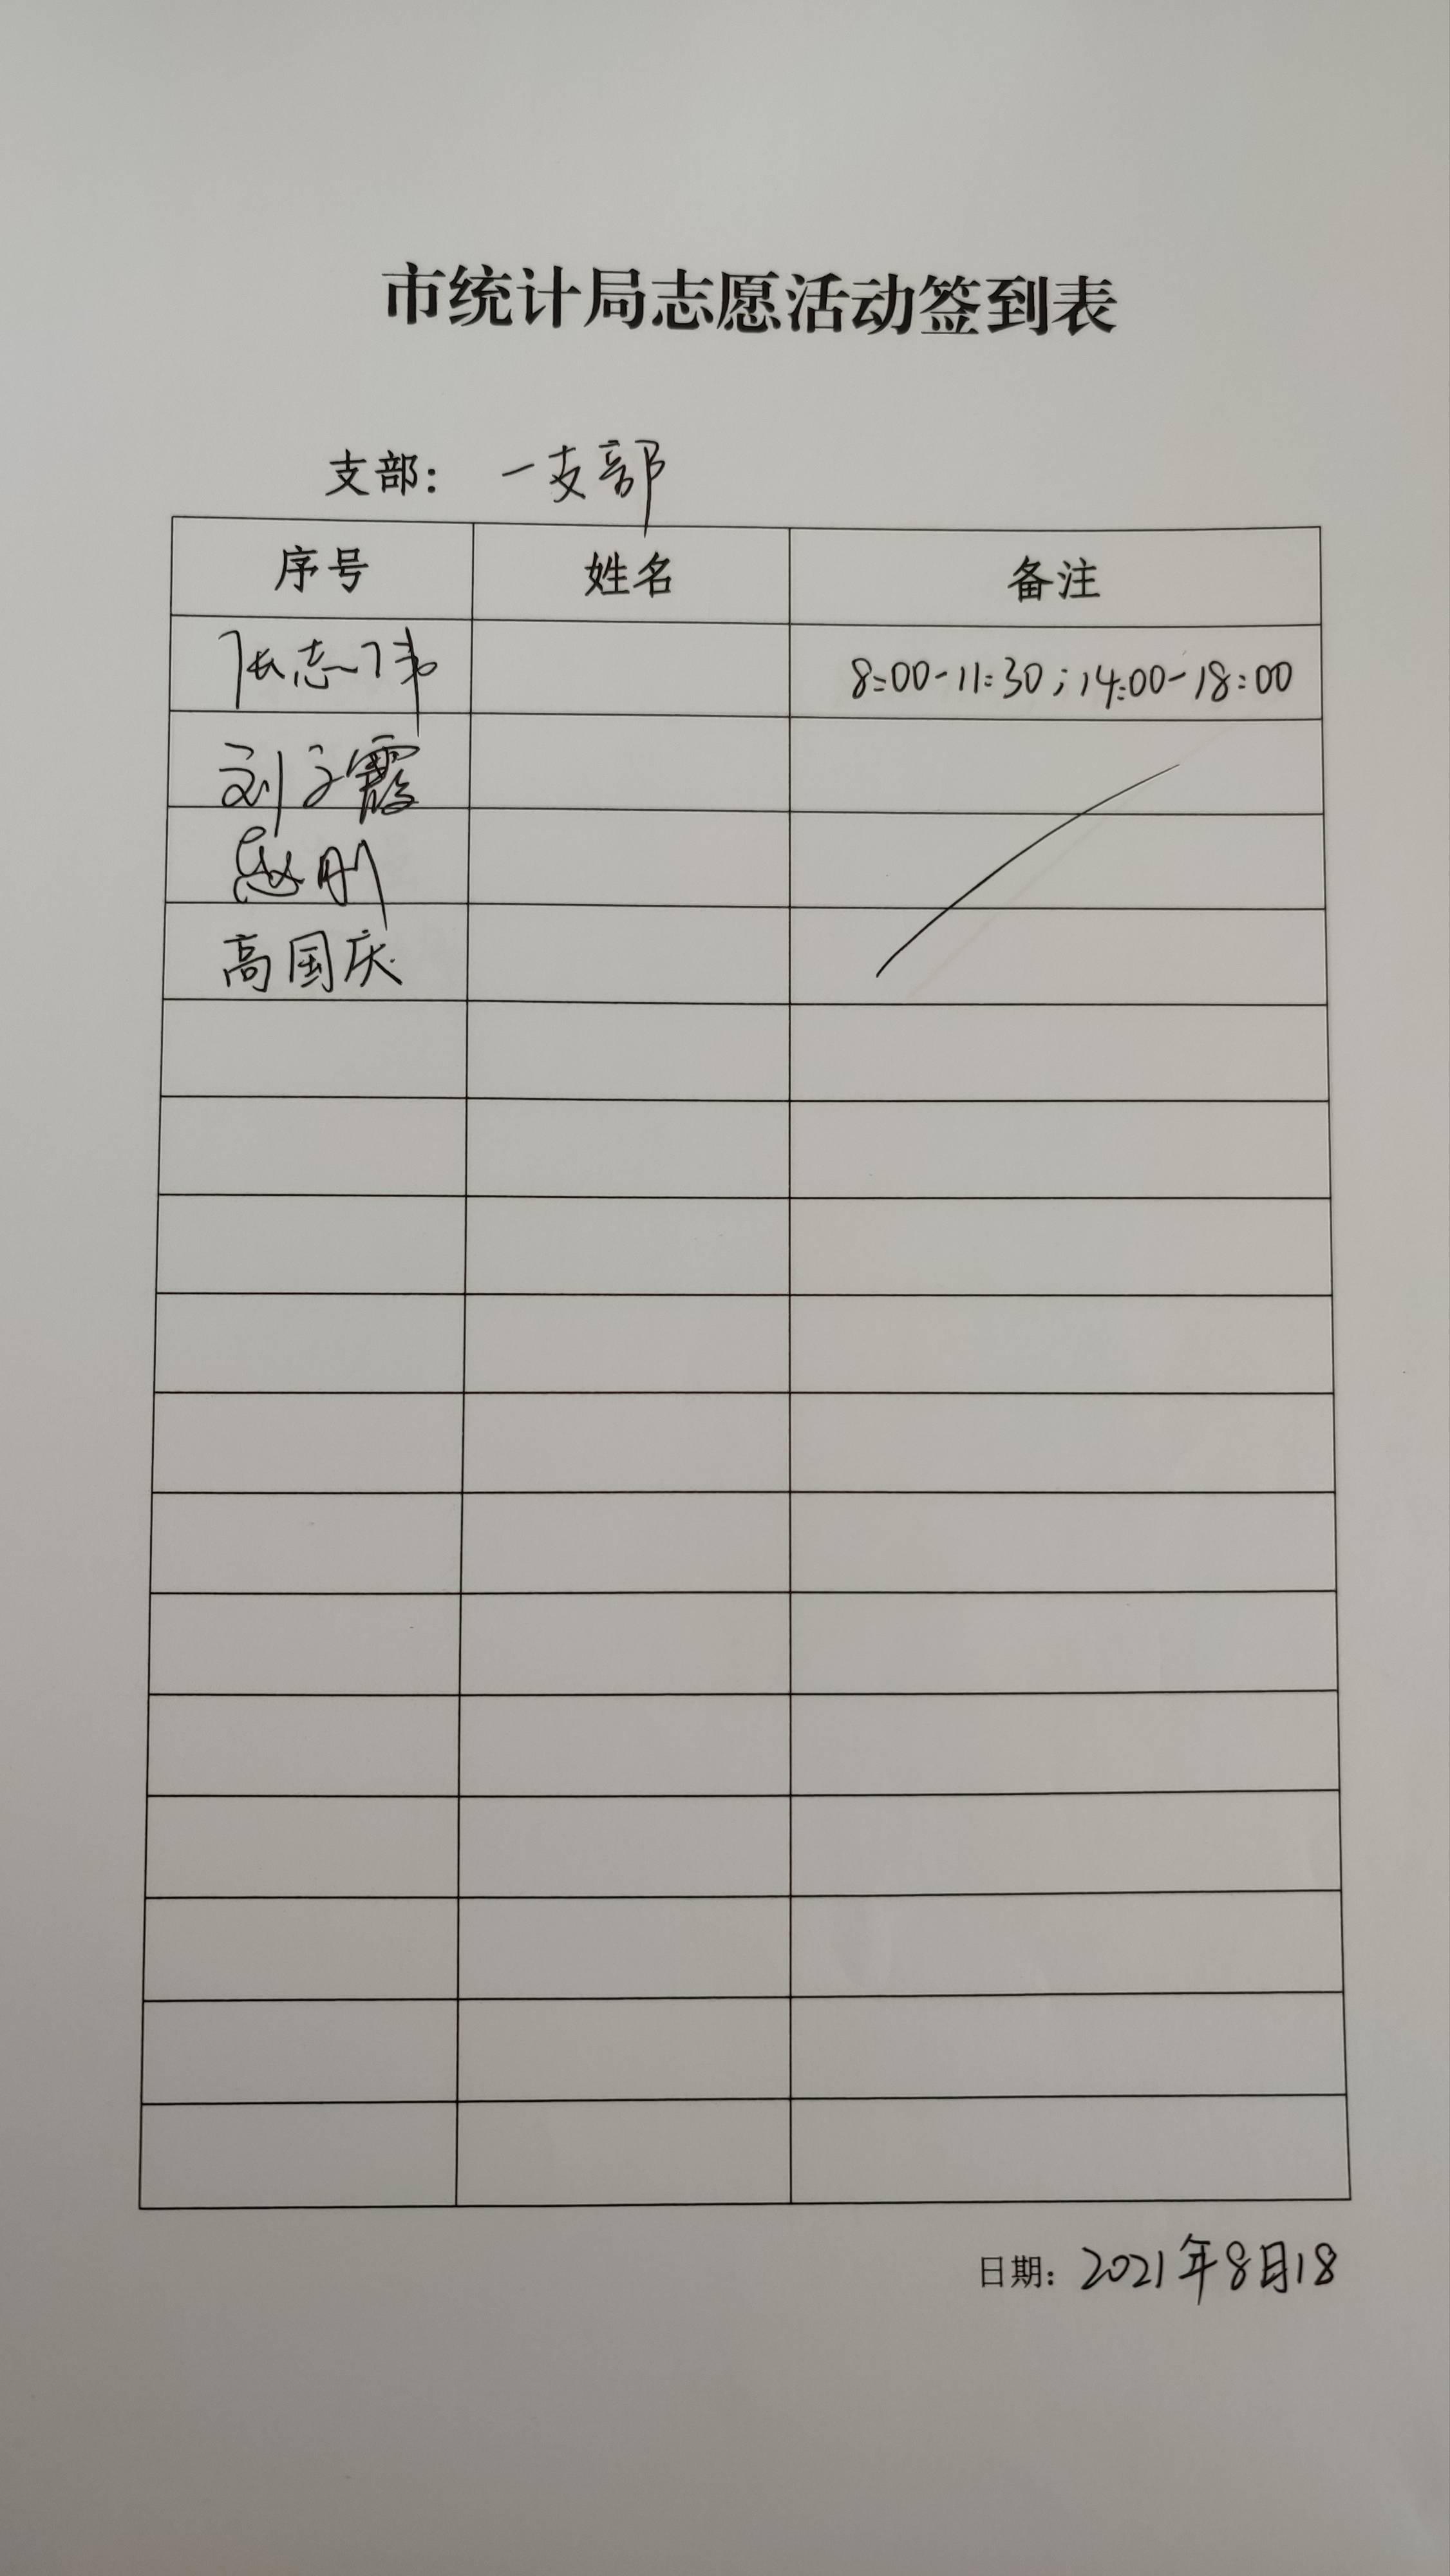 市统计局志愿活动签到表
支部： 一支部
序号 姓名 备注
张志伟 8:00-11:30；14:00-18:00
刘子霞
刚
高国庆
日期： 2021年8月18